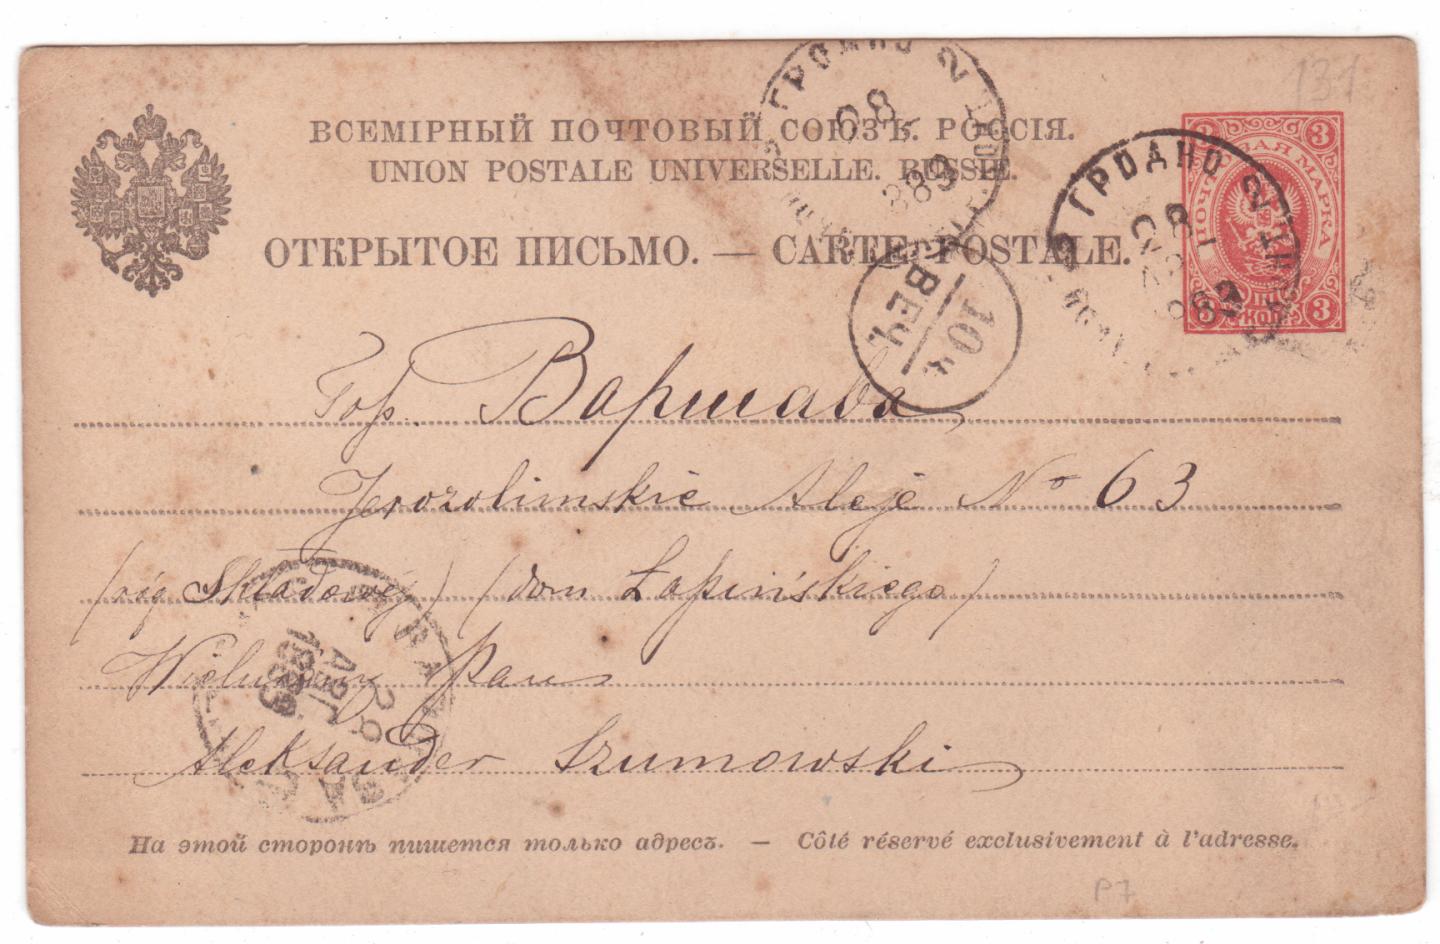 131
ВСЕМІРНЫЙ ПОЧТОВЫЙ СОЮЗЪ. РОССІЯ.
UNION POSTALE UNIVERSELLE. RUSSIE.
ОТКРЫТОЕ ПИСЬМО. — CARTE POSTALE.
3 3
ПОЧТОВАЯ МАРКА
3 КОП. 3
ГРОДНО 2
ГРОДНО 2
10 Ч. ВЕЧ.
Гор. Варшава
Jerozolimskie Aleje No 63
/róg Składowej/ /dom Łapińskiego/
Wielmożny Pan
Aleksander Szumowski
АВГ.
1889
На этой сторонѣ пишется только адресъ. — Côté réservé exclusivement à l'adresse.
P7